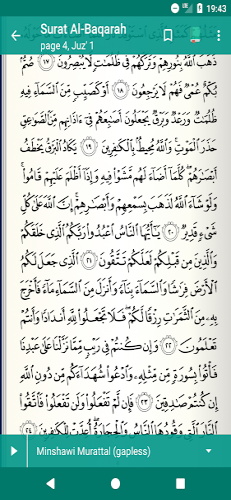 19:43
Surat Al-Baqarah
page 4, Juz' 1
ذَهَبَ ٱللَّهُ بِنُورِهِمْ وَتَرَكَهُمْ فِى ظُلُمَٰتٍ لَّا يُبْصِرُونَ ١٧ صُمٌّۢ
بُكْمٌ عُمْىٌ فَهُمْ لَا يَرْجِعُونَ ١٨ أَوْ كَصَيِّبٍ مِّنَ ٱلسَّمَآءِ فِيهِ
ظُلُمَٰتٌ وَرَعْدٌ وَبَرْقٌ يَجْعَلُونَ أَصَٰبِعَهُمْ فِىٓ ءَاذَانِهِم مِّنَ ٱلصَّوَٰعِقِ
حَذَرَ ٱلْمَوْتِ وَٱللَّهُ مُحِيطٌۢ بِٱلْكَٰفِرِينَ ١٩ يَكَادُ ٱلْبَرْقُ يَخْطَفُ
أَبْصَٰرَهُمْ كُلَّمَآ أَضَآءَ لَهُم مَّشَوْا۟ فِيهِ وَإِذَآ أَظْلَمَ عَلَيْهِمْ قَامُوا۟
وَلَوْ شَآءَ ٱللَّهُ لَذَهَبَ بِسَمْعِهِمْ وَأَبْصَٰرِهِمْ إِنَّ ٱللَّهَ عَلَىٰ كُلِّ
شَىْءٍ قَدِيرٌ ٢٠ يَٰٓأَيُّهَا ٱلنَّاسُ ٱعْبُدُوا۟ رَبَّكُمُ ٱلَّذِى خَلَقَكُمْ
وَٱلَّذِينَ مِن قَبْلِكُمْ لَعَلَّكُمْ تَتَّقُونَ ٢١ ٱلَّذِى جَعَلَ لَكُمُ
ٱلْأَرْضَ فِرَٰشًا وَٱلسَّمَآءَ بِنَآءً وَأَنزَلَ مِنَ ٱلسَّمَآءِ مَآءً فَأَخْرَجَ
بِهِۦ مِنَ ٱلثَّمَرَٰتِ رِزْقًا لَّكُمْ فَلَا تَجْعَلُوا۟ لِلَّهِ أَندَادًا وَأَنتُمْ
تَعْلَمُونَ ٢٢ وَإِن كُنتُمْ فِى رَيْبٍ مِّمَّا نَزَّلْنَا عَلَىٰ عَبْدِنَا
فَأْتُوا۟ بِسُورَةٍ مِّن مِّثْلِهِۦ وَٱدْعُوا۟ شُهَدَآءَكُم مِّن دُونِ ٱللَّهِ
إِن كُنتُمْ صَٰدِقِينَ ٢٣ فَإِن لَّمْ تَفْعَلُوا۟ وَلَن تَفْعَلُوا۟ فَٱتَّقُوا۟
ٱلنَّارَ ٱلَّتِى وَقُودُهَا ٱلنَّاسُ وَٱلْحِجَارَةُ أُعِدَّتْ لِلْكَٰفِرِينَ ٢٤
Minshawi Murattal (gapless)